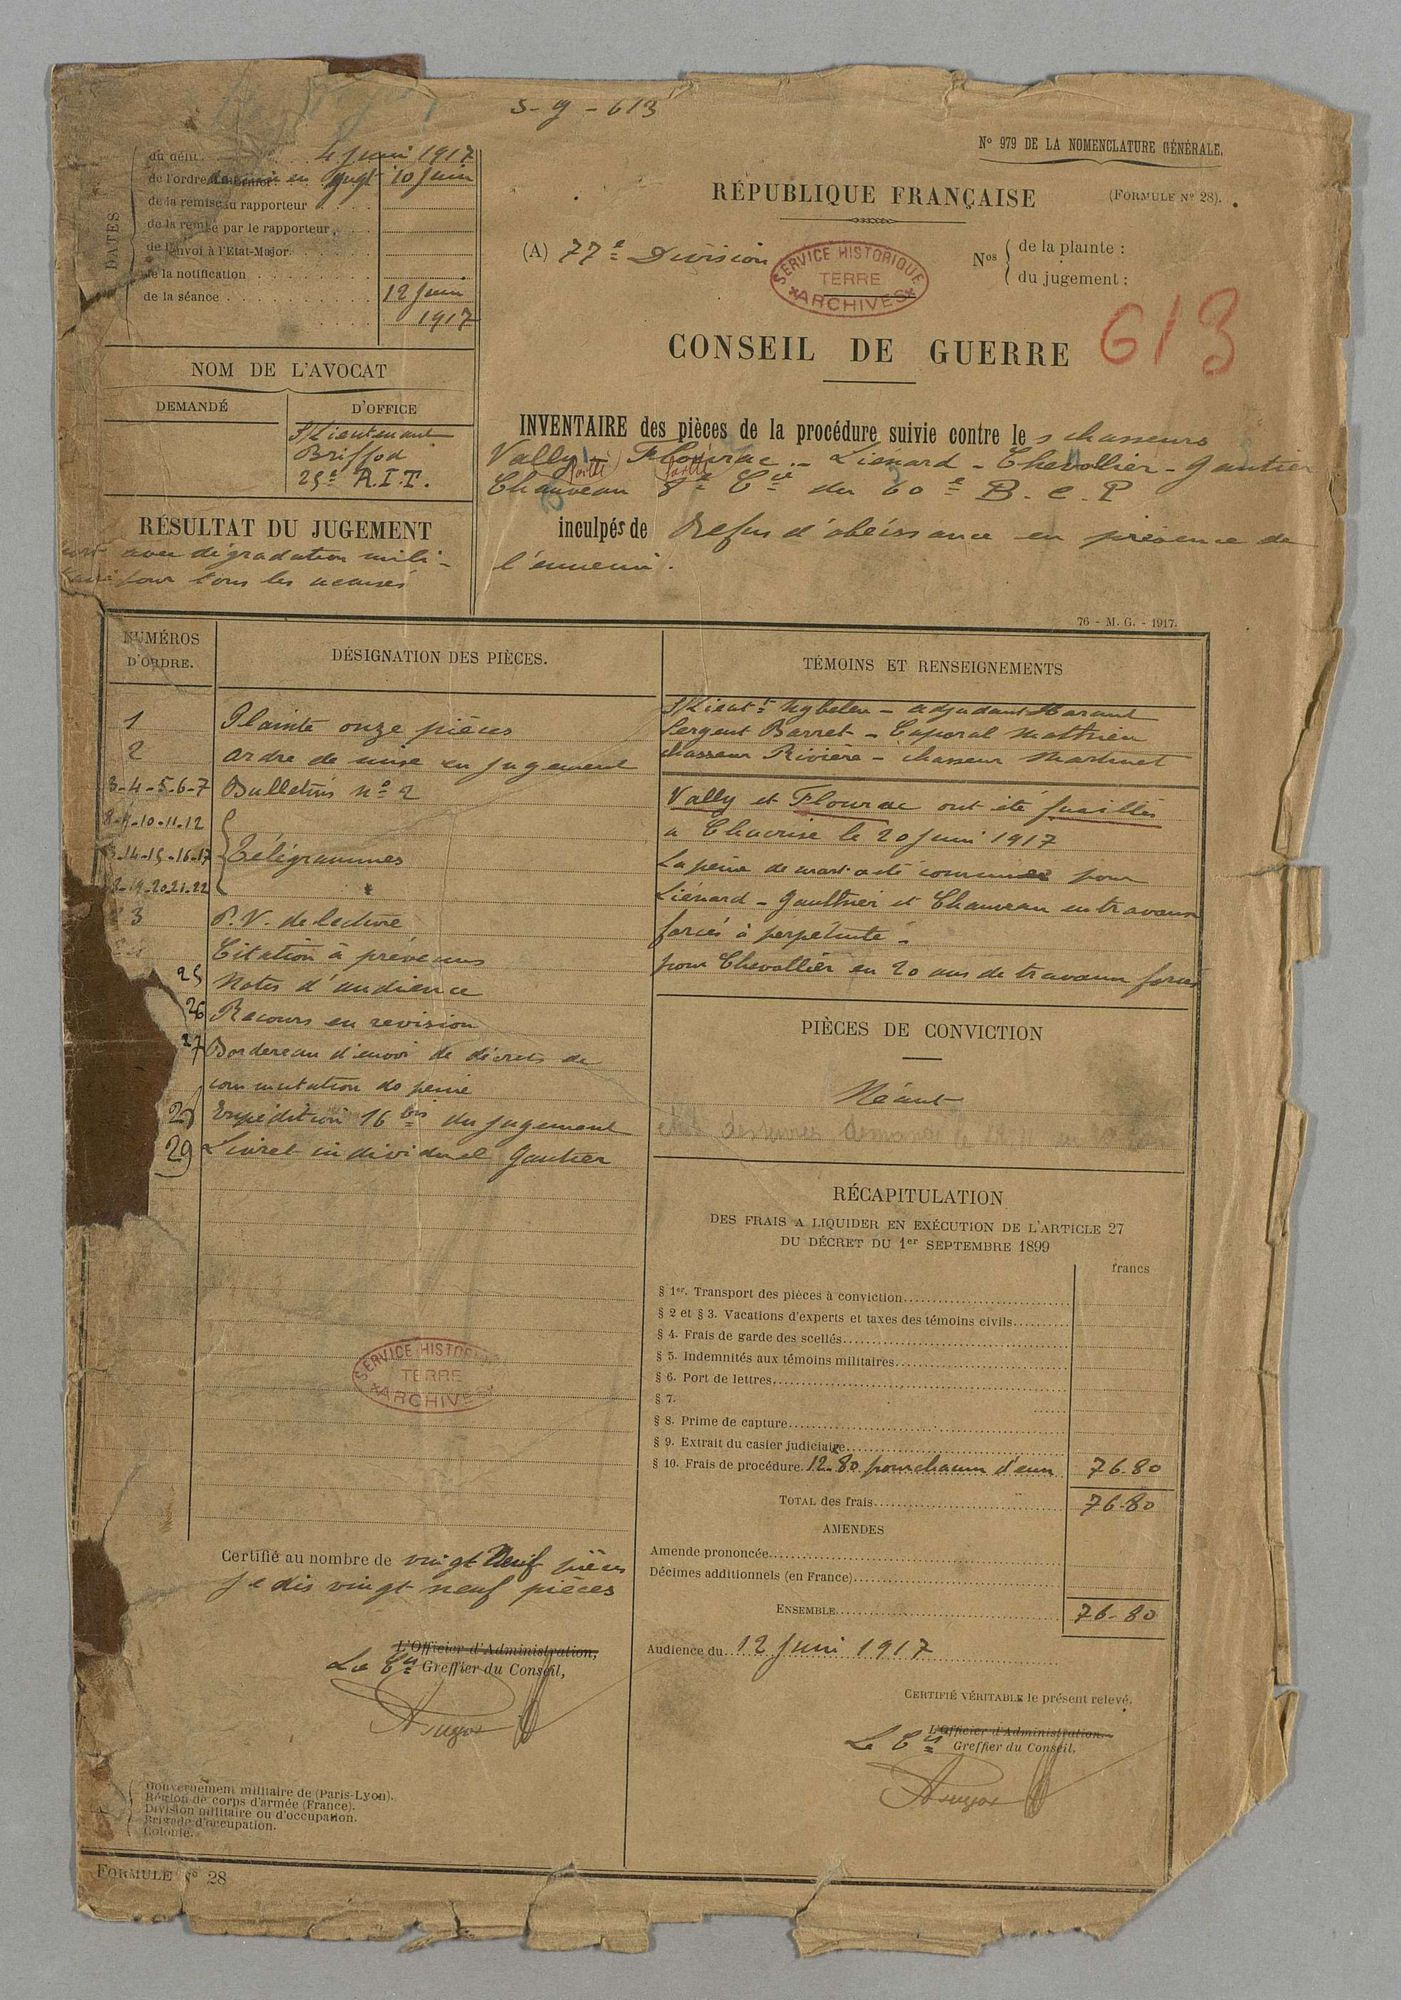 S-g-613
N° 979 DE LA NOMENCLATURE GÉNÉRALE.
(FORMULE N° 28).
DATES
du délit 4 Juin 1917
de l'ordre de mise en jugt 10 Juin
de la remise au rapporteur
de la remise par le rapporteur
de l'envoi à l'Etat-Major
de la notification
de la séance 12 Juin
1917
NOM DE L'AVOCAT
DEMANDÉ
D'OFFICE
S/Lieutenant
Briffod
25e R.I.T.
RÉSULTAT DU JUGEMENT
mort avec dégradation mili-
taire pour tous les accusés
RÉPUBLIQUE FRANÇAISE
(A) 77e Division
SERVICE HISTORIQUE
TERRE
ARCHIVES
Nos
de la plainte :
du jugement :
CONSEIL DE GUERRE
613
INVENTAIRE des pièces de la procédure suivie contre les chasseurs
Vally - Flourac - Liénard - Chevallier - Gautier
Chauveau 8e Cie du 60e B.C.P
inculpés de Refus d'obéissance en présence de
l'ennemi.
76 - M. G. - 1917.
NUMÉROS
D'ORDRE.
DÉSIGNATION DES PIÈCES.
1 Plainte onze pièces
2 Ordre de mise en jugement
3-4-5-6-7 Bulletins n° 2
8-9-10-11-12
13-14-15-16-17 Télégrammes
18-19-20-21-22
23 P.V. de lecture
24 Citation à prévenus
25 Notes d'audience
26 Recours en revision
27 Bordereau d'envoi de décrets de
commutation de peine
28 Expédition 16 bis du jugement
29 Livret individuel Gautier
SERVICE HISTORIQUE
TERRE
ARCHIVES
Certifié au nombre de vingt neuf pièces
Je dis vingt neuf pièces
L'Officier d'Administration,
Le Cis Greffier du Conseil,
Gouvernement militaire de (Paris-Lyon).
Région de corps d'armée (France).
Division militaire ou d'occupation.
Brigade d'occupation.
Colonie.
FORMULE N° 28
TÉMOINS ET RENSEIGNEMENTS
S/Lieutt - adjudant
Sergent Barret - Caporal Mathieu
chasseur Rivière - chasseur Martinet
Vally et Flourac ont été fusillés
à Chacrise le 20 Juin 1917
La peine de mort a été commuée pour
Liénard - Gaulthier et Chauveau en travaux
forcés à perpétuité -
pour Chevallier en 20 ans de travaux forcés
PIÈCES DE CONVICTION
Néant
RÉCAPITULATION
DES FRAIS A LIQUIDER EN EXÉCUTION DE L'ARTICLE 27
DU DÉCRET DU 1er SEPTEMBRE 1899
francs
§ 1er. Transport des pièces à conviction
§ 2 et § 3. Vacations d'experts et taxes des témoins civils
§ 4. Frais de garde des scellés
§ 5. Indemnités aux témoins militaires
§ 6. Port de lettres
§ 7.
§ 8. Prime de capture
§ 9. Extrait du casier judiciaire
§ 10. Frais de procédure. 12.80 pour chacun d'eux 76.80
TOTAL des frais 76.80
AMENDES
Amende prononcée
Décimes additionnels (en France)
ENSEMBLE 76.80
Audience du 12 Juin 1917
CERTIFIÉ VÉRITABLE le présent relevé.
L'Officier d'Administration.
Le Cis Greffier du Conseil,